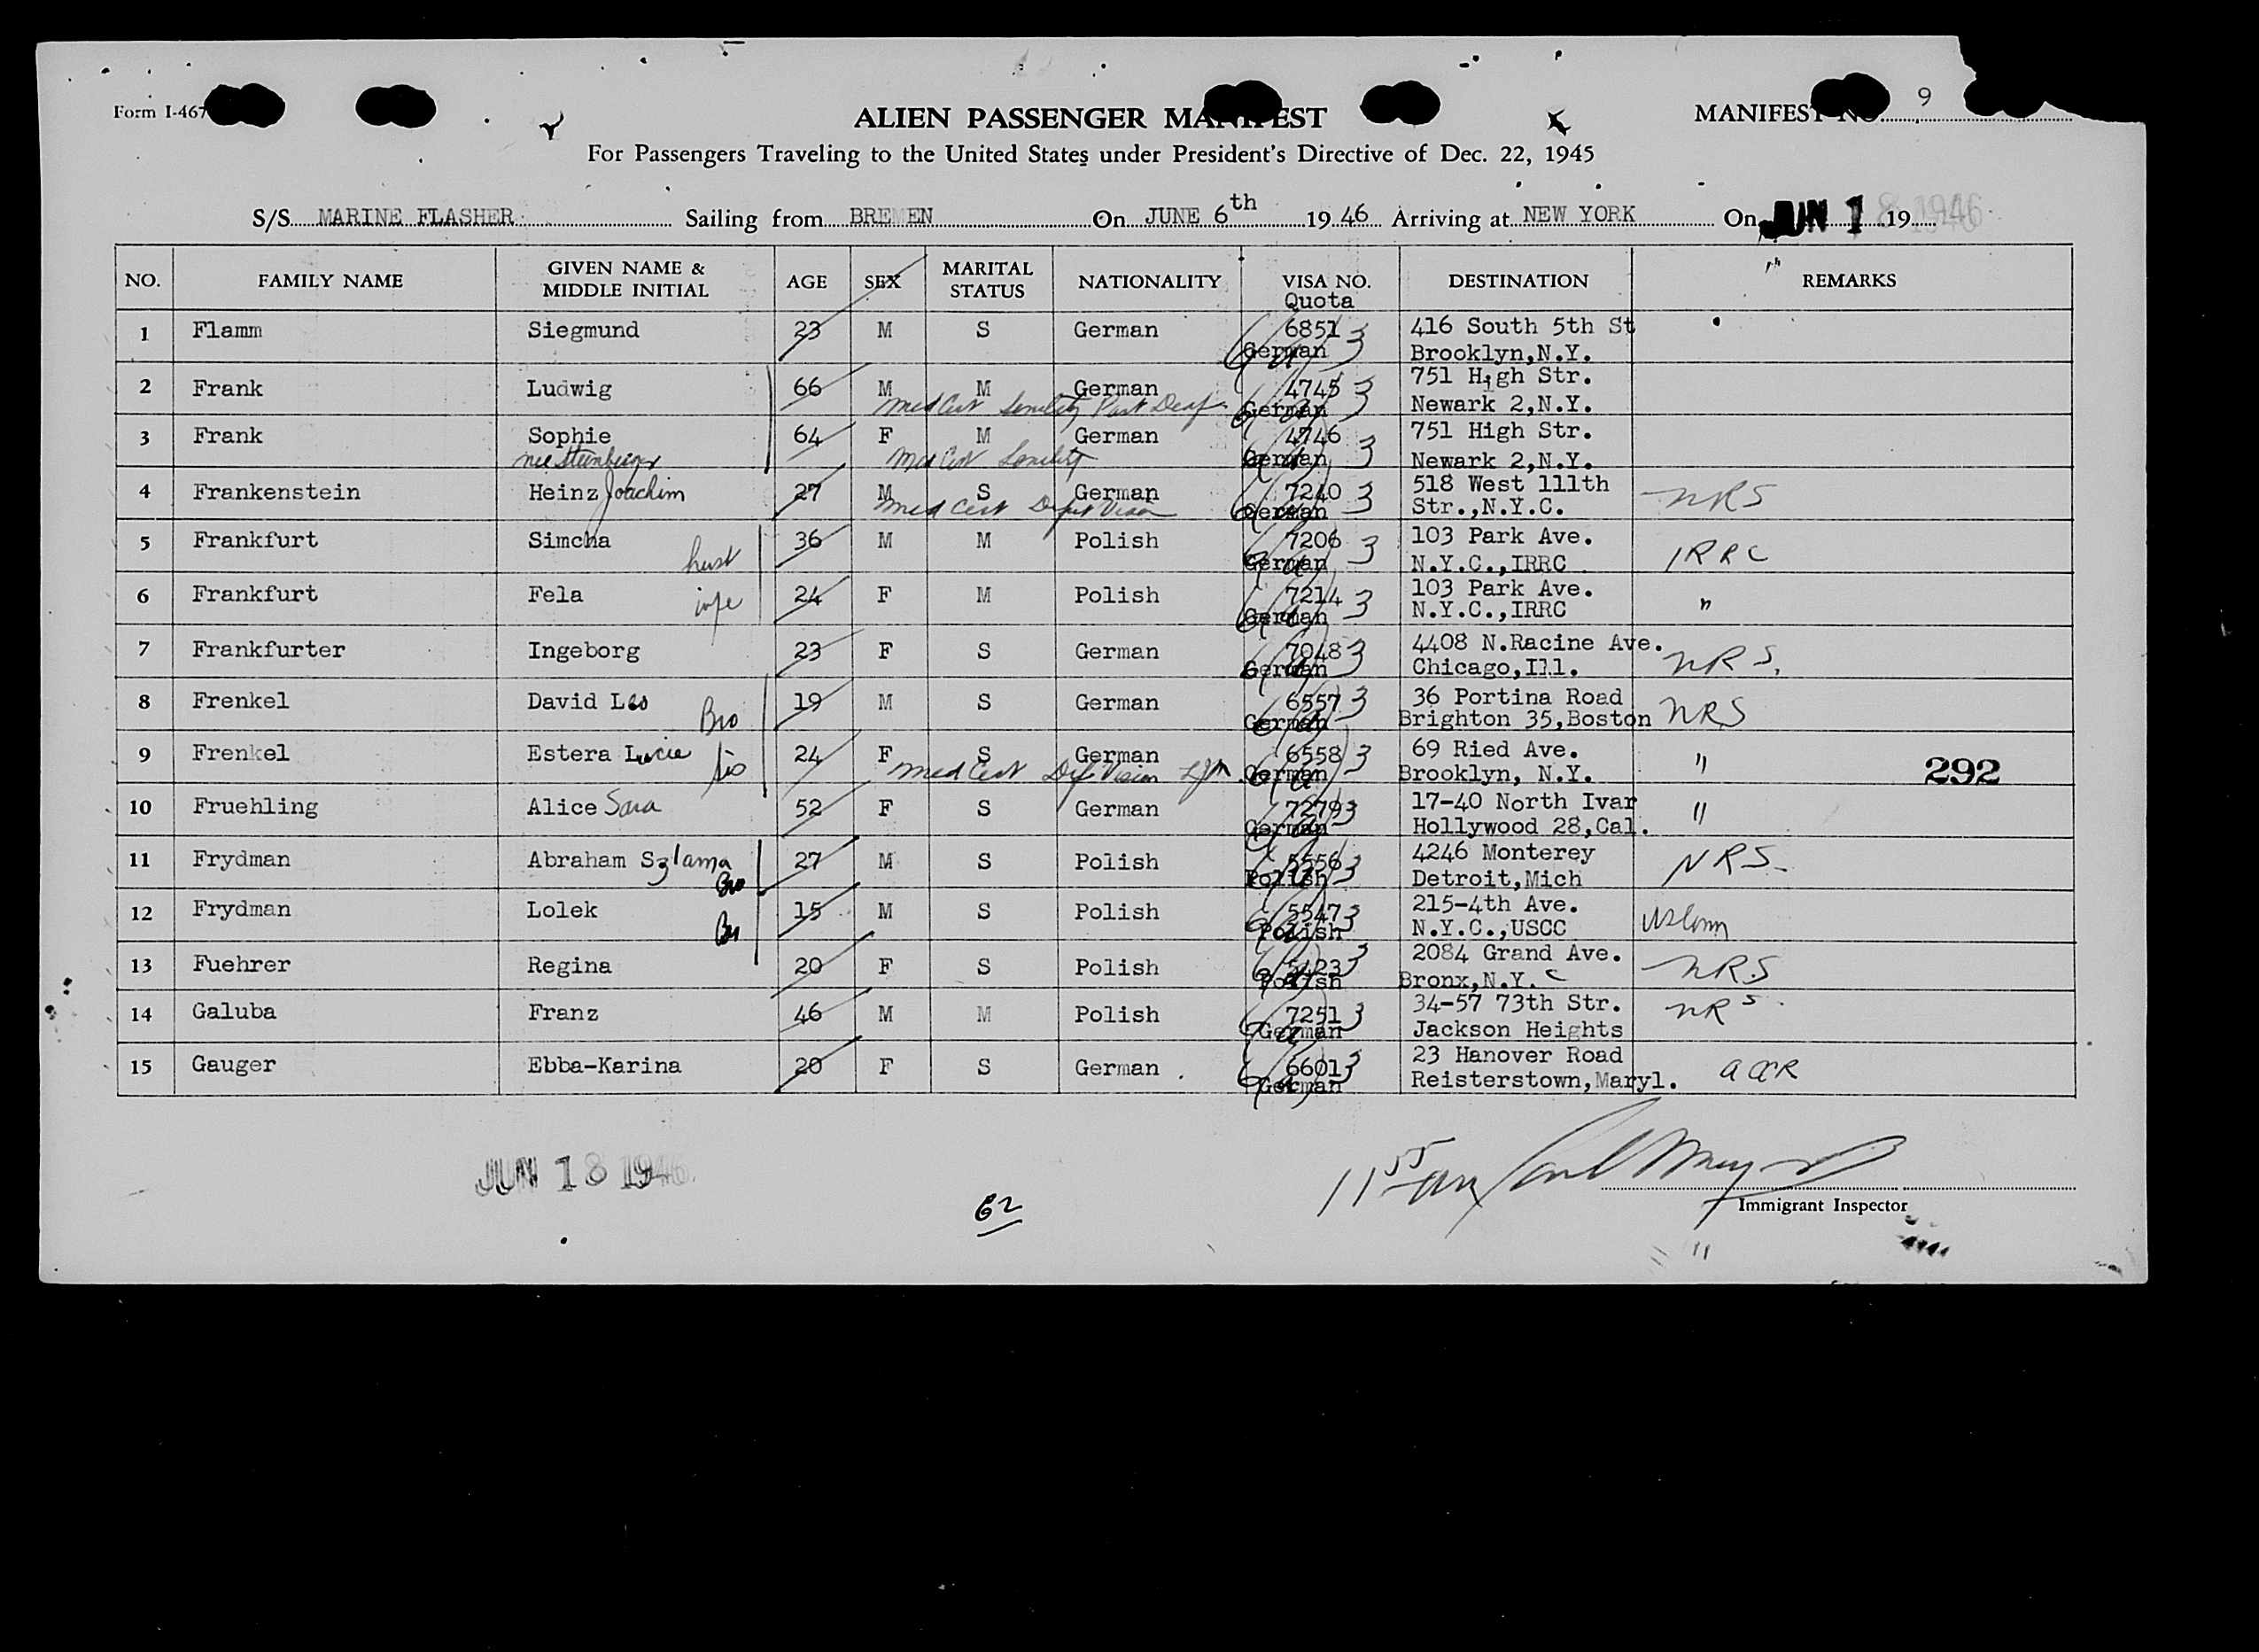 Form I-467
ALIEN PASSENGER MANIFEST
MANIFEST NO. 9
For Passengers Traveling to the United States under President's Directive of Dec. 22, 1945
S/S MARINE FLASHER Sailing from BREMEN On JUNE 6th 19 46 Arriving at NEW YORK On JUN 18 1946 19
NO. FAMILY NAME GIVEN NAME & MIDDLE INITIAL AGE SEX MARITAL STATUS NATIONALITY VISA NO. Quota DESTINATION REMARKS
1 Flamm Siegmund 23 M S German 6851 3 416 South 5th St
German Brooklyn,N.Y.
2 Frank Ludwig 66 M M German 4745 3 751 High Str.
Med Cert Senility Part Deaf German Newark 2,N.Y.
3 Frank Sophie 64 F M German 4746 3 751 High Str.
nee Med Cert Senility German Newark 2,N.Y.
4 Frankenstein Heinz Joachim 27 M S German 7240 3 518 West 111th NRS
Med Cert Def Vision German Str.,N.Y.C.
5 Frankfurt Simcha 36 M M Polish 7206 3 103 Park Ave. IRRC
husb German N.Y.C.,IRRC
6 Frankfurt Fela wife 24 F M Polish 7214 3 103 Park Ave. "
German N.Y.C.,IRRC
7 Frankfurter Ingeborg 23 F S German 7048 3 4408 N.Racine Ave.
German Chicago,Ill. NRS.
8 Frenkel David Leo Bro 19 M S German 6557 3 36 Portina Road NRS
German Brighton 35,Boston
9 Frenkel Estera Lucie sis 24 F S German 6558 3 69 Ried Ave. "
Med Cert Def Vision German Brooklyn, N.Y. 292
10 Fruehling Alice Sara 52 F S German 7279 3 17-40 North Ivar "
German Hollywood 28,Cal.
11 Frydman Abraham Szlama Bro 27 M S Polish 5556 3 4246 Monterey NRS
Polish Detroit,Mich
12 Frydman Lolek Bro 15 M S Polish 5547 3 215-4th Ave.
Polish N.Y.C.,USCC
13 Fuehrer Regina 20 F S Polish 3 2084 Grand Ave. NRS
Polish Bronx,N.Y.C
14 Galuba Franz 46 M M Polish 7251 3 34-57 73th Str. NRS
German Jackson Heights
15 Gauger Ebba-Karina 20 F S German 6601 3 23 Hanover Road
German Reisterstown,Maryl.
JUN 18 1946
62
11 55 am
Immigrant Inspector